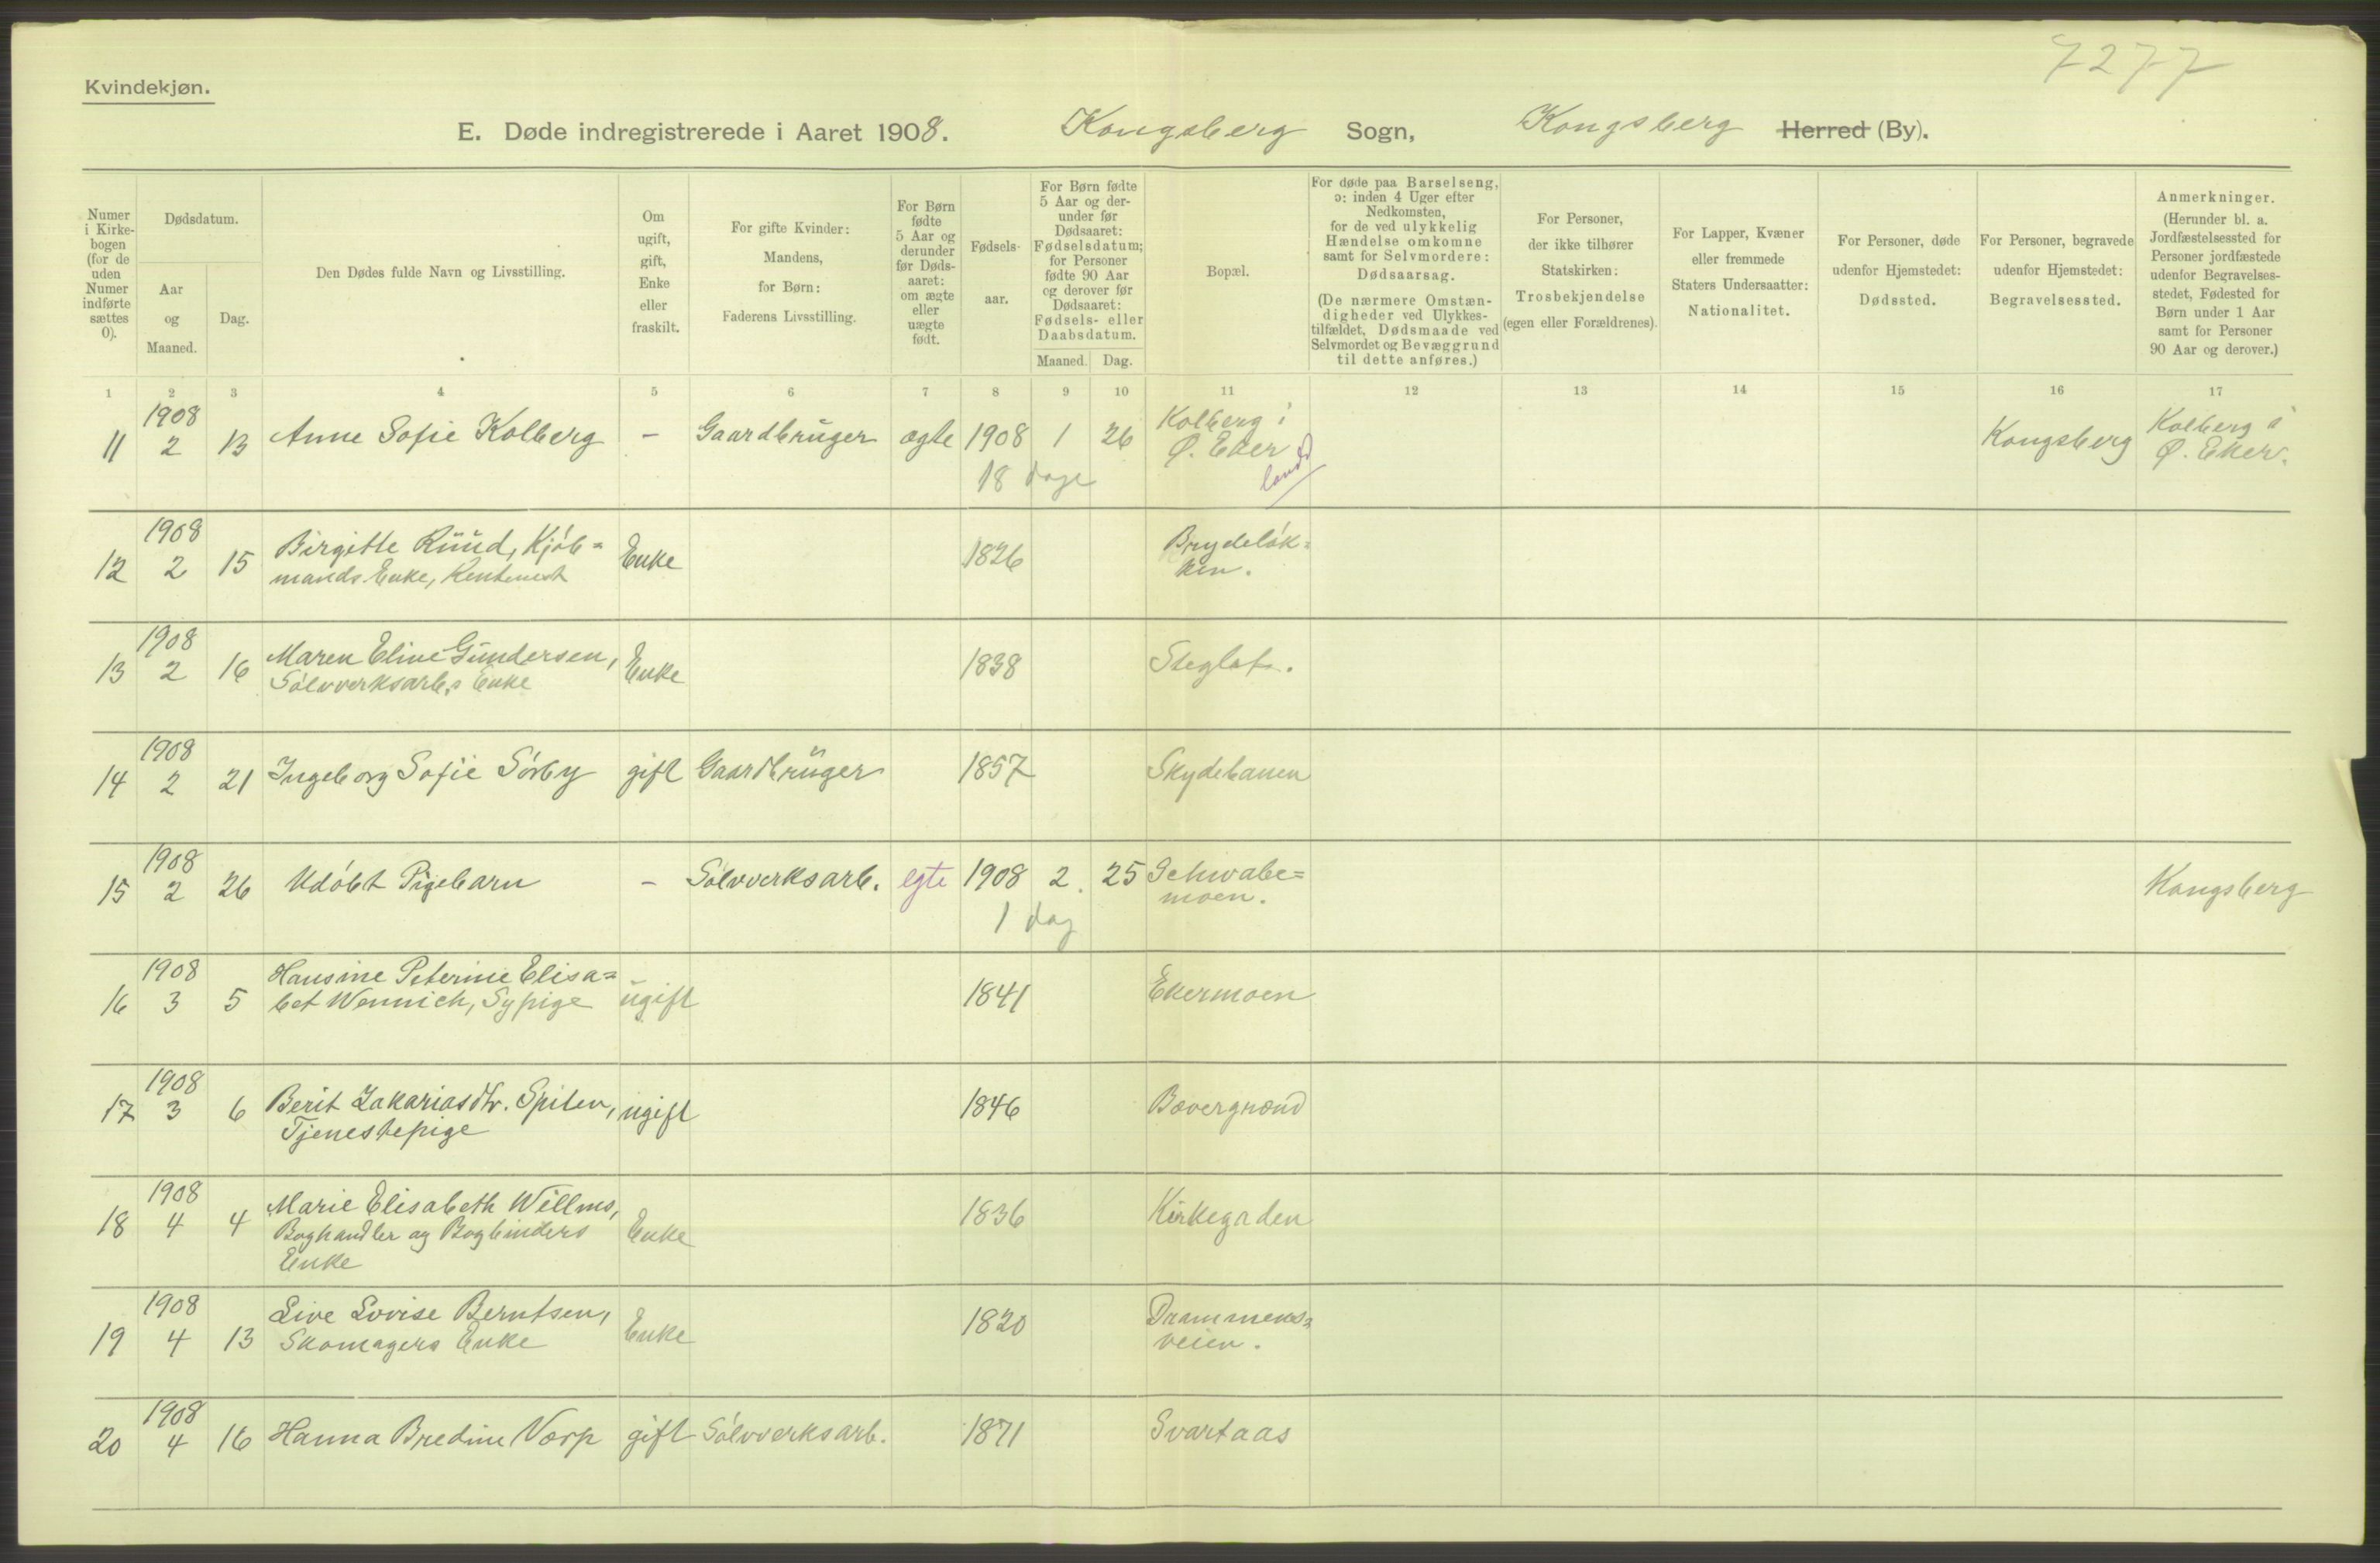 7277
Kvindekjøn.
E. Døde indregistrerede i Aaret 1908. Kongsberg Sogn, Kongsberg Herred (By).
Numer i Kirke-bogen (for de uden Numer indførte sættes 0).
Dødsdatum.
Aar og Maaned.
Dag.
Den Dødes fulde Navn og Livsstilling.
Om ugift, gift, Enke eller fraskilt.
For gifte Kvinder: Mandens, for Børn: Faderens Livsstilling.
For Børn fødte 5 Aar og derunder før Døds-aaret: om ægte eller uægte født.
Fødsels-aar.
For Børn fødte 5 Aar og der-under før Dødsaaret: Fødselsdatum; for Personer fødte 90 Aar og derover før Dødsaaret: Fødsels- eller Daabsdatum.
Maaned. Dag.
Bopæl.
For døde paa Barselseng, ɔ: inden 4 Uger efter Nedkomsten, for de ved ulykkelig Hændelse omkomne samt for Selvmordere: Dødsaarsag.
(De nærmere Omstæn-digheder ved Ulykkes-tilfældet, Dødsmaade ved Selvmordet og Bevæggrund til dette anføres.)
For Personer, der ikke tilhører Statskirken: Trosbekjendelse (egen eller Forældrenes).
For Lapper, Kvæner eller fremmede Staters Undersaatter: Nationalitet.
For Personer, døde udenfor Hjemstedet: Dødssted.
For Personer, begravede udenfor Hjemstedet: Begravelsessted.
Anmerkninger. (Herunder bl. a. Jordfæstelsessted for Personer jordfæstede udenfor Begravelses-stedet, Fødested for Børn under 1 Aar samt for Personer 90 Aar og derover.)
1 2 3 4 5 6 7 8 9 10 11 12 13 14 15 16 17
1908
11 2 13 Anne Sofie Kolberg – Gaardbruger ægte 1908 1 26 Kolberg i Ø. Eker Kongsberg Kolberg i Ø. Eker.
18 dage landd
1908
12 2 15 Birgitte Ruud, Kjøb= Enke 1826 Brydeløk=
mands Enke, ken.
1908
13 2 16 Maren Eline Gundersen, Enke 1838
Sølvverksarb.s Enke
1908
14 2 21 Ingeborg Sofie Sørby gift Gaardbruger 1857 Skydebanen
1908
15 2 26 Udøbt Pigebarn – Sølvverksarb. egte 1908 2. 25 Schwabe= Kongsberg
1 dag moen.
1908 Hansine Peterine Elisa=
16 3 5 bet Wennich, Sypige ugift 1841 Ekermoen
1908
17 3 6 Berit Zakariasdtr. Spiten, ugift 1846 Bævergrænd
Tjenestepige
1908 Marie Elisabeth Willms,
18 4 4 Boghandler og Bogbinders Enke 1836 Kirkegaden
Enke
1908 Live Lovise Berntsen, Drammens=
19 4 13 Skomagers Enke Enke 1820 veien.
1908
20 4 16 Hanna Bredine Vorp gift Sølvverksarb. 1871 Svartaas